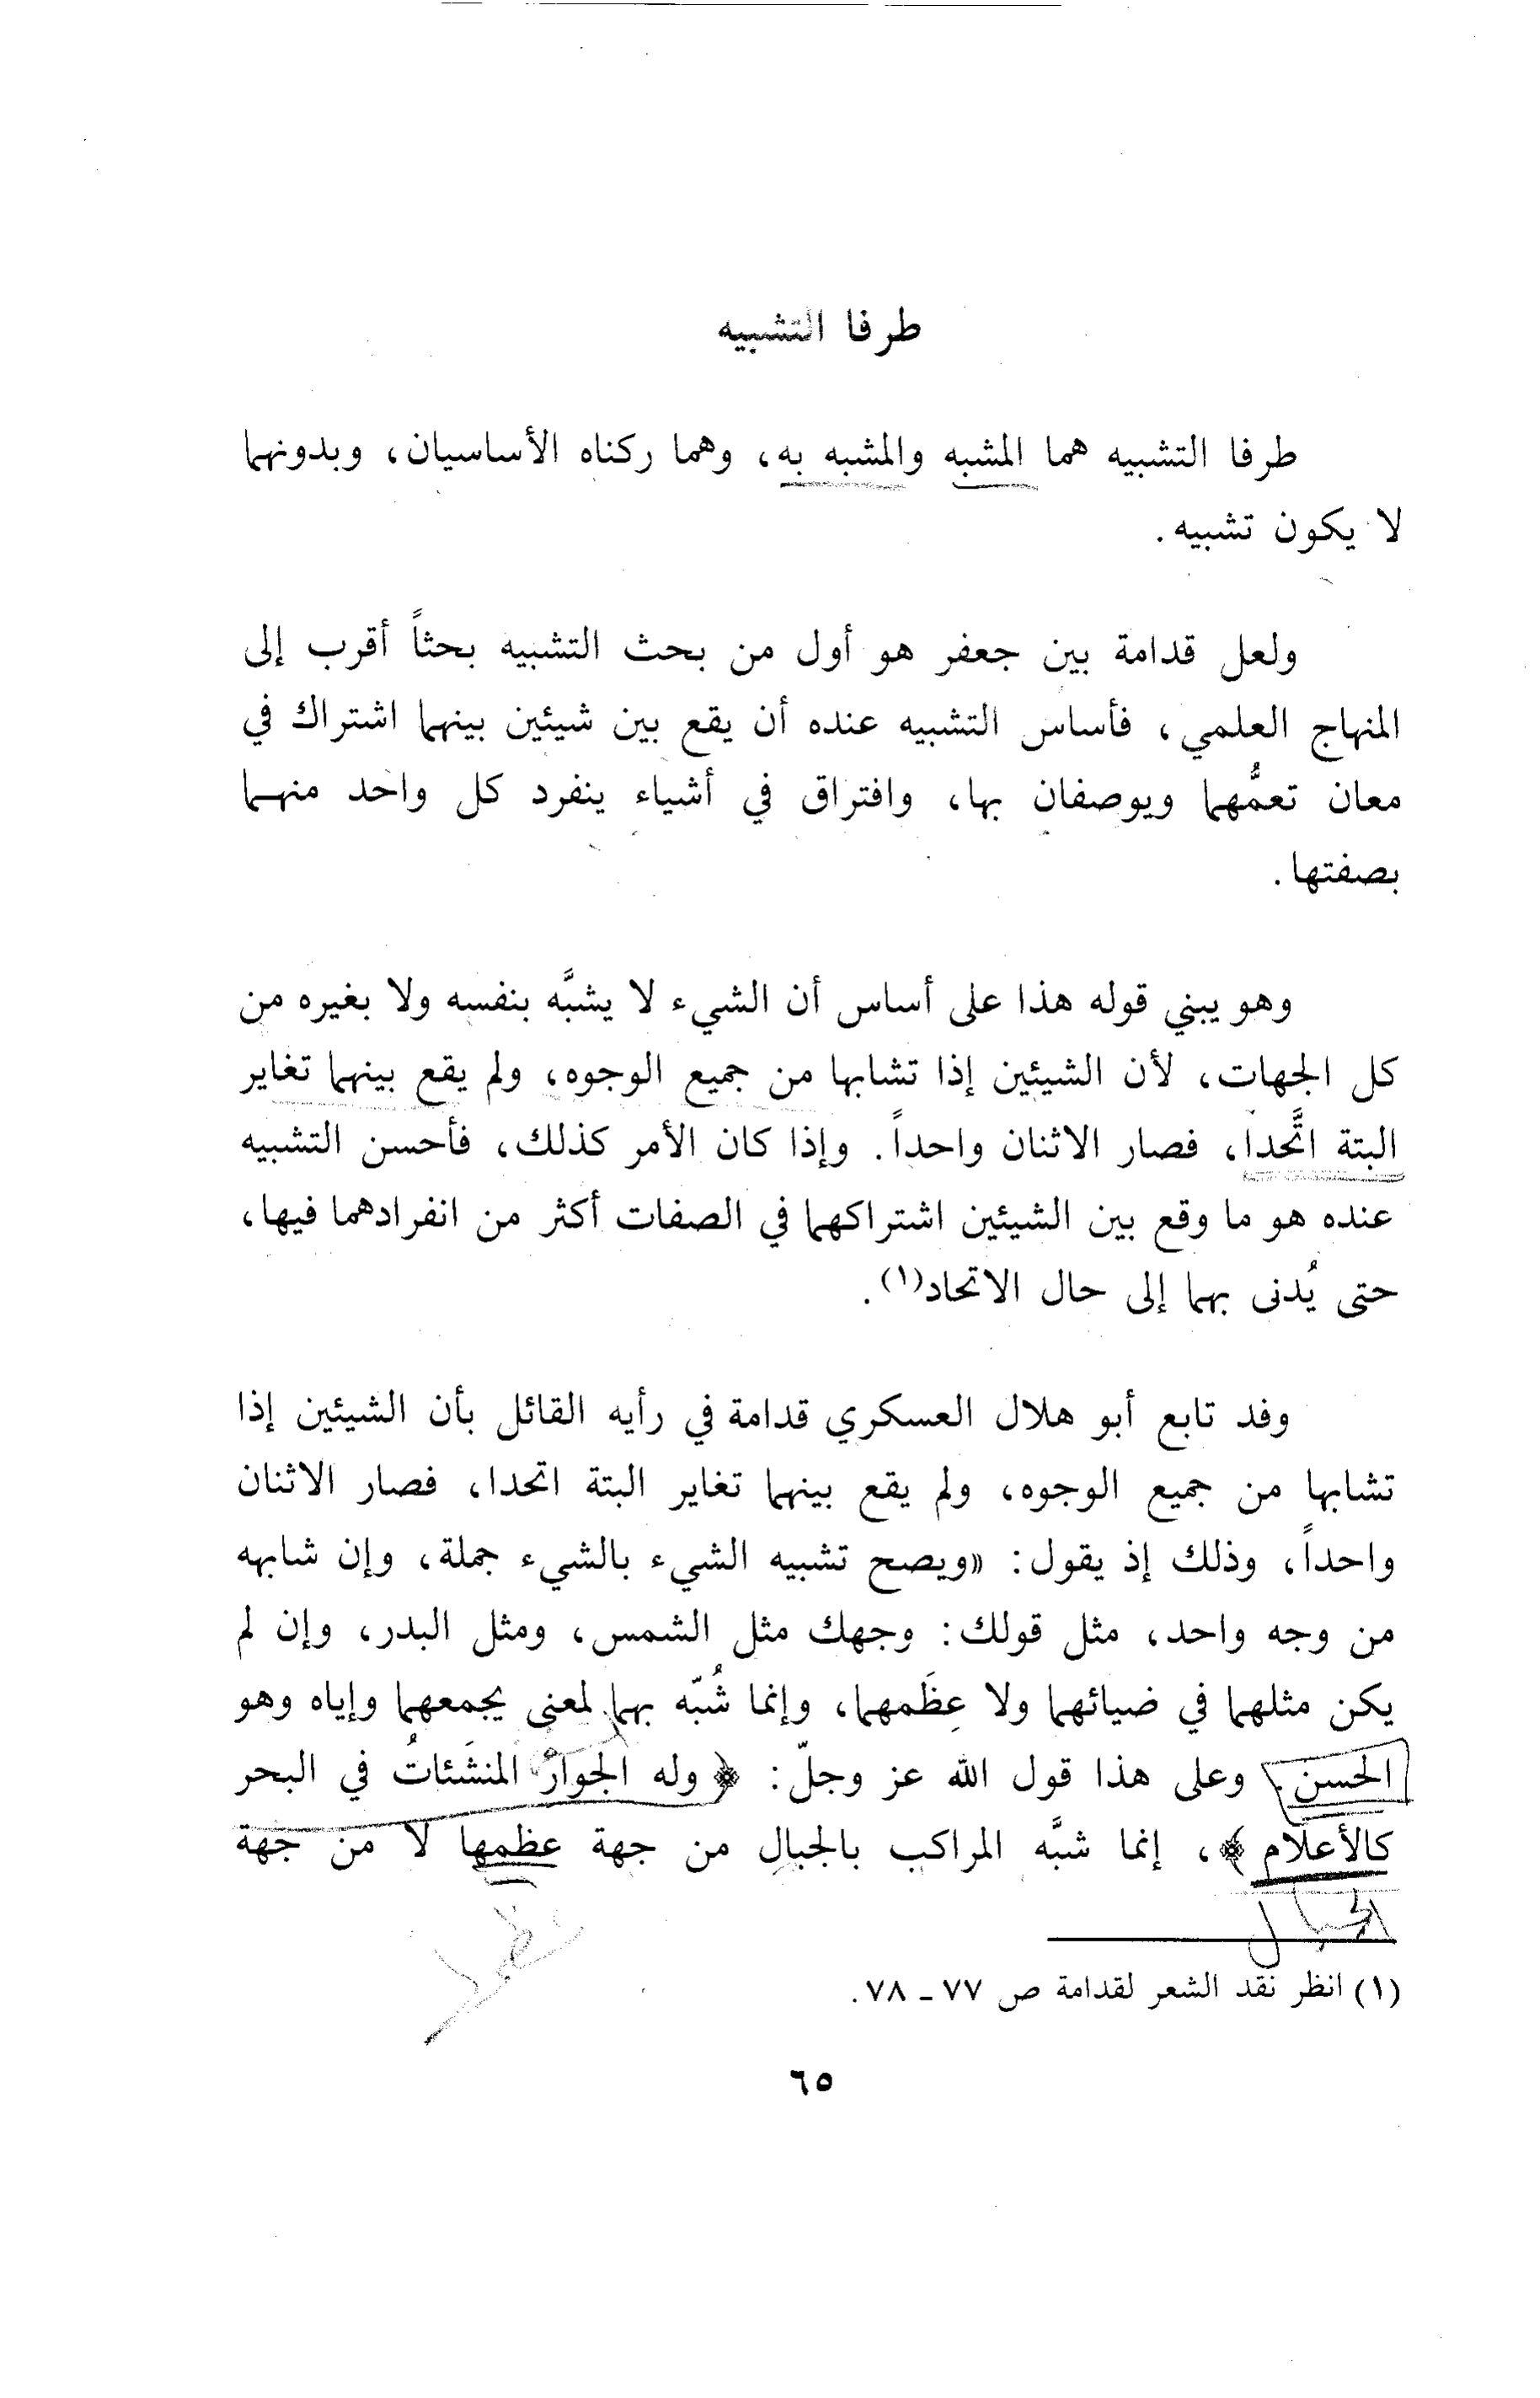 طرفا التشبيه
طرفا التشبيه هما المشبه والمشبه به، وهما ركناه الأساسيان، وبدونهما
لا يكون تشبيه.
ولعل قدامة بين جعفر هو أول من بحث التشبيه بحثاً أقرب إلى
المنهاج العلمي، فأساس التشبيه عنده أن يقع بين شيئين بينهما اشتراك في
معان تعمُّهما ويوصفان بها، وافتراق في أشياء ينفرد كل واحد منهما
بصفتها.
وهو يبني قوله هذا على أساس أن الشيء لا يشبَّه بنفسه ولا بغيره من
كل الجهات، لأن الشيئين إذا تشابها من جميع الوجوه، ولم يقع بينهما تغاير
البتة اتَّحدا، فصار الاثنان واحداً. وإذا كان الأمر كذلك، فأحسن التشبيه
عنده هو ما وقع بين الشيئين اشتراكهما في الصفات أكثر من انفرادهما فيها،
حتى يُدنى بهما إلى حال الاتحاد(١).
وفد تابع أبو هلال العسكري قدامة في رأيه القائل بأن الشيئين إذا
تشابها من جميع الوجوه، ولم يقع بينهما تغاير البتة اتحدا، فصار الاثنان
واحداً، وذلك إذ يقول: «ويصح تشبيه الشيء بالشيء جملة، وإن شابهه
من وجه واحد، مثل قولك: وجهك مثل الشمس، ومثل البدر، وإن لم
يكن مثلهما في ضيائهما ولا عِظَمهما، وإنما شُبّه بهما لمعنى يجمعهما وإياه وهو
الحسن. وعلى هذا قول الله عز وجلّ: ﴿وله الجوارُ المنشَئاتُ في البحر
كالأعلام﴾، إنما شبَّه المراكب بالجبال من جهة عظمها لا من جهة
الجبال
(١) انظر نقد الشعر لقدامة ص ٧٧ ـ ٧٨.
٦٥